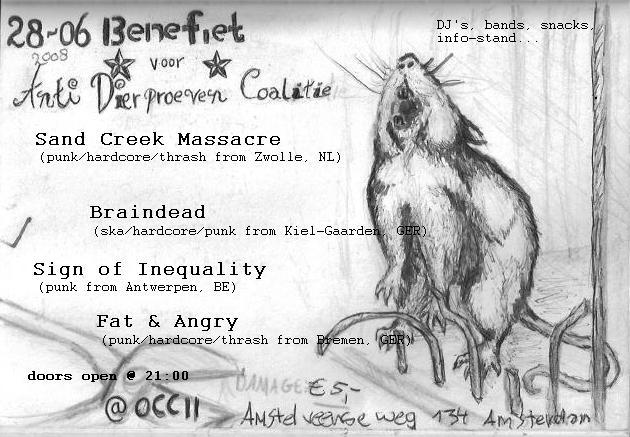 28-06 Benefiet
2008
DJ's, bands, snacks,
info-stand...
voor
Anti Dierproeven Coalitie
Sand Creek Massacre
(punk/hardcore/thrash from Zwolle, NL)
Braindead
(ska/hardcore/punk from Kiel-Gaarden, GER)
Sign of Inequality
(punk from Antwerpen, BE)
Fat & Angry
(punk/hardcore/thrash from Bremen, GER)
doors open @ 21:00
DAMAGE: €5,-
@ OCCII
Amstelveenseweg 134 Amsterdam